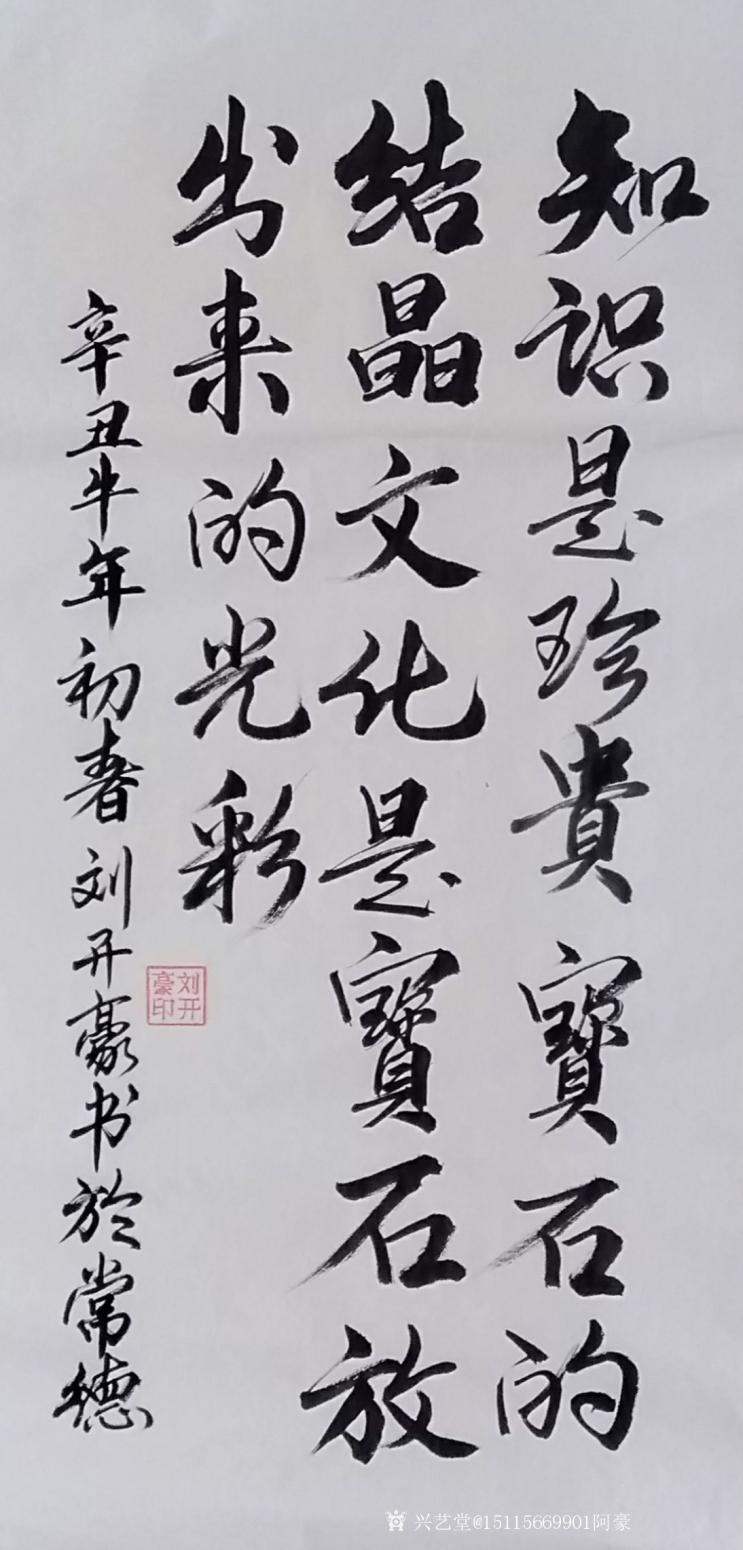 知识是珍貴寶石的
结晶文化是寳石放
出来的光彩
辛丑牛年初春刘开豪书於常德
刘开豪印
兴艺堂@15115669901阿豪